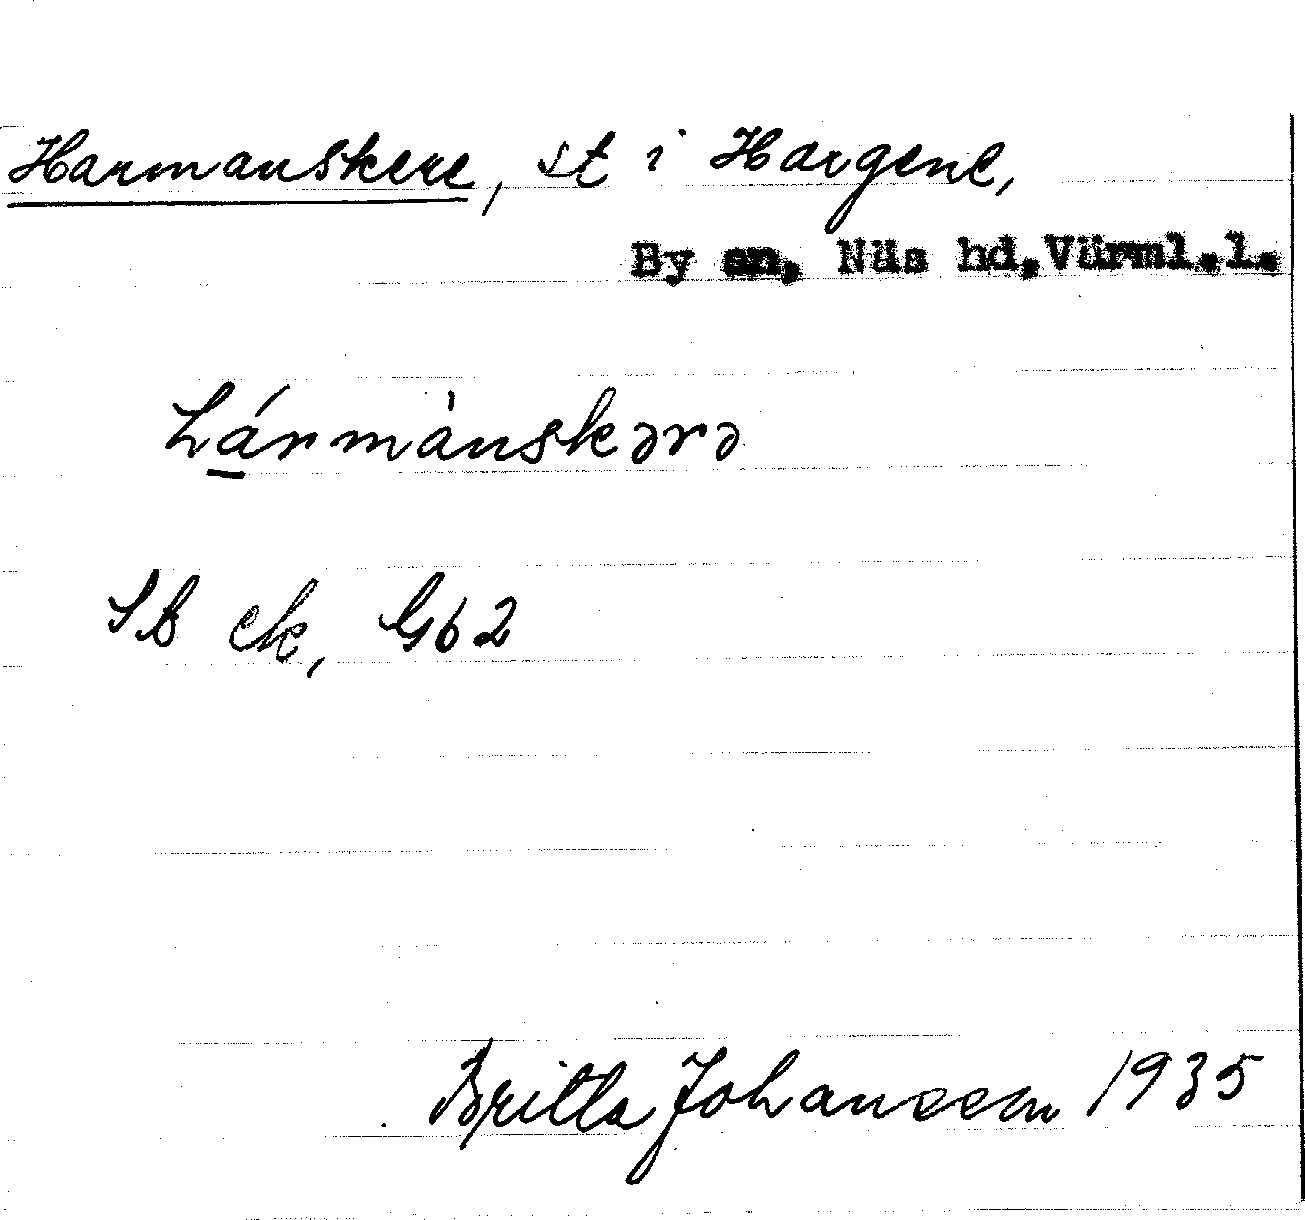 Harmanskere, st i Hargene,
By sn, Näs hd,Värml.l.
hár mànskərə
SB ek, Gb2
Britta Johansson 1935